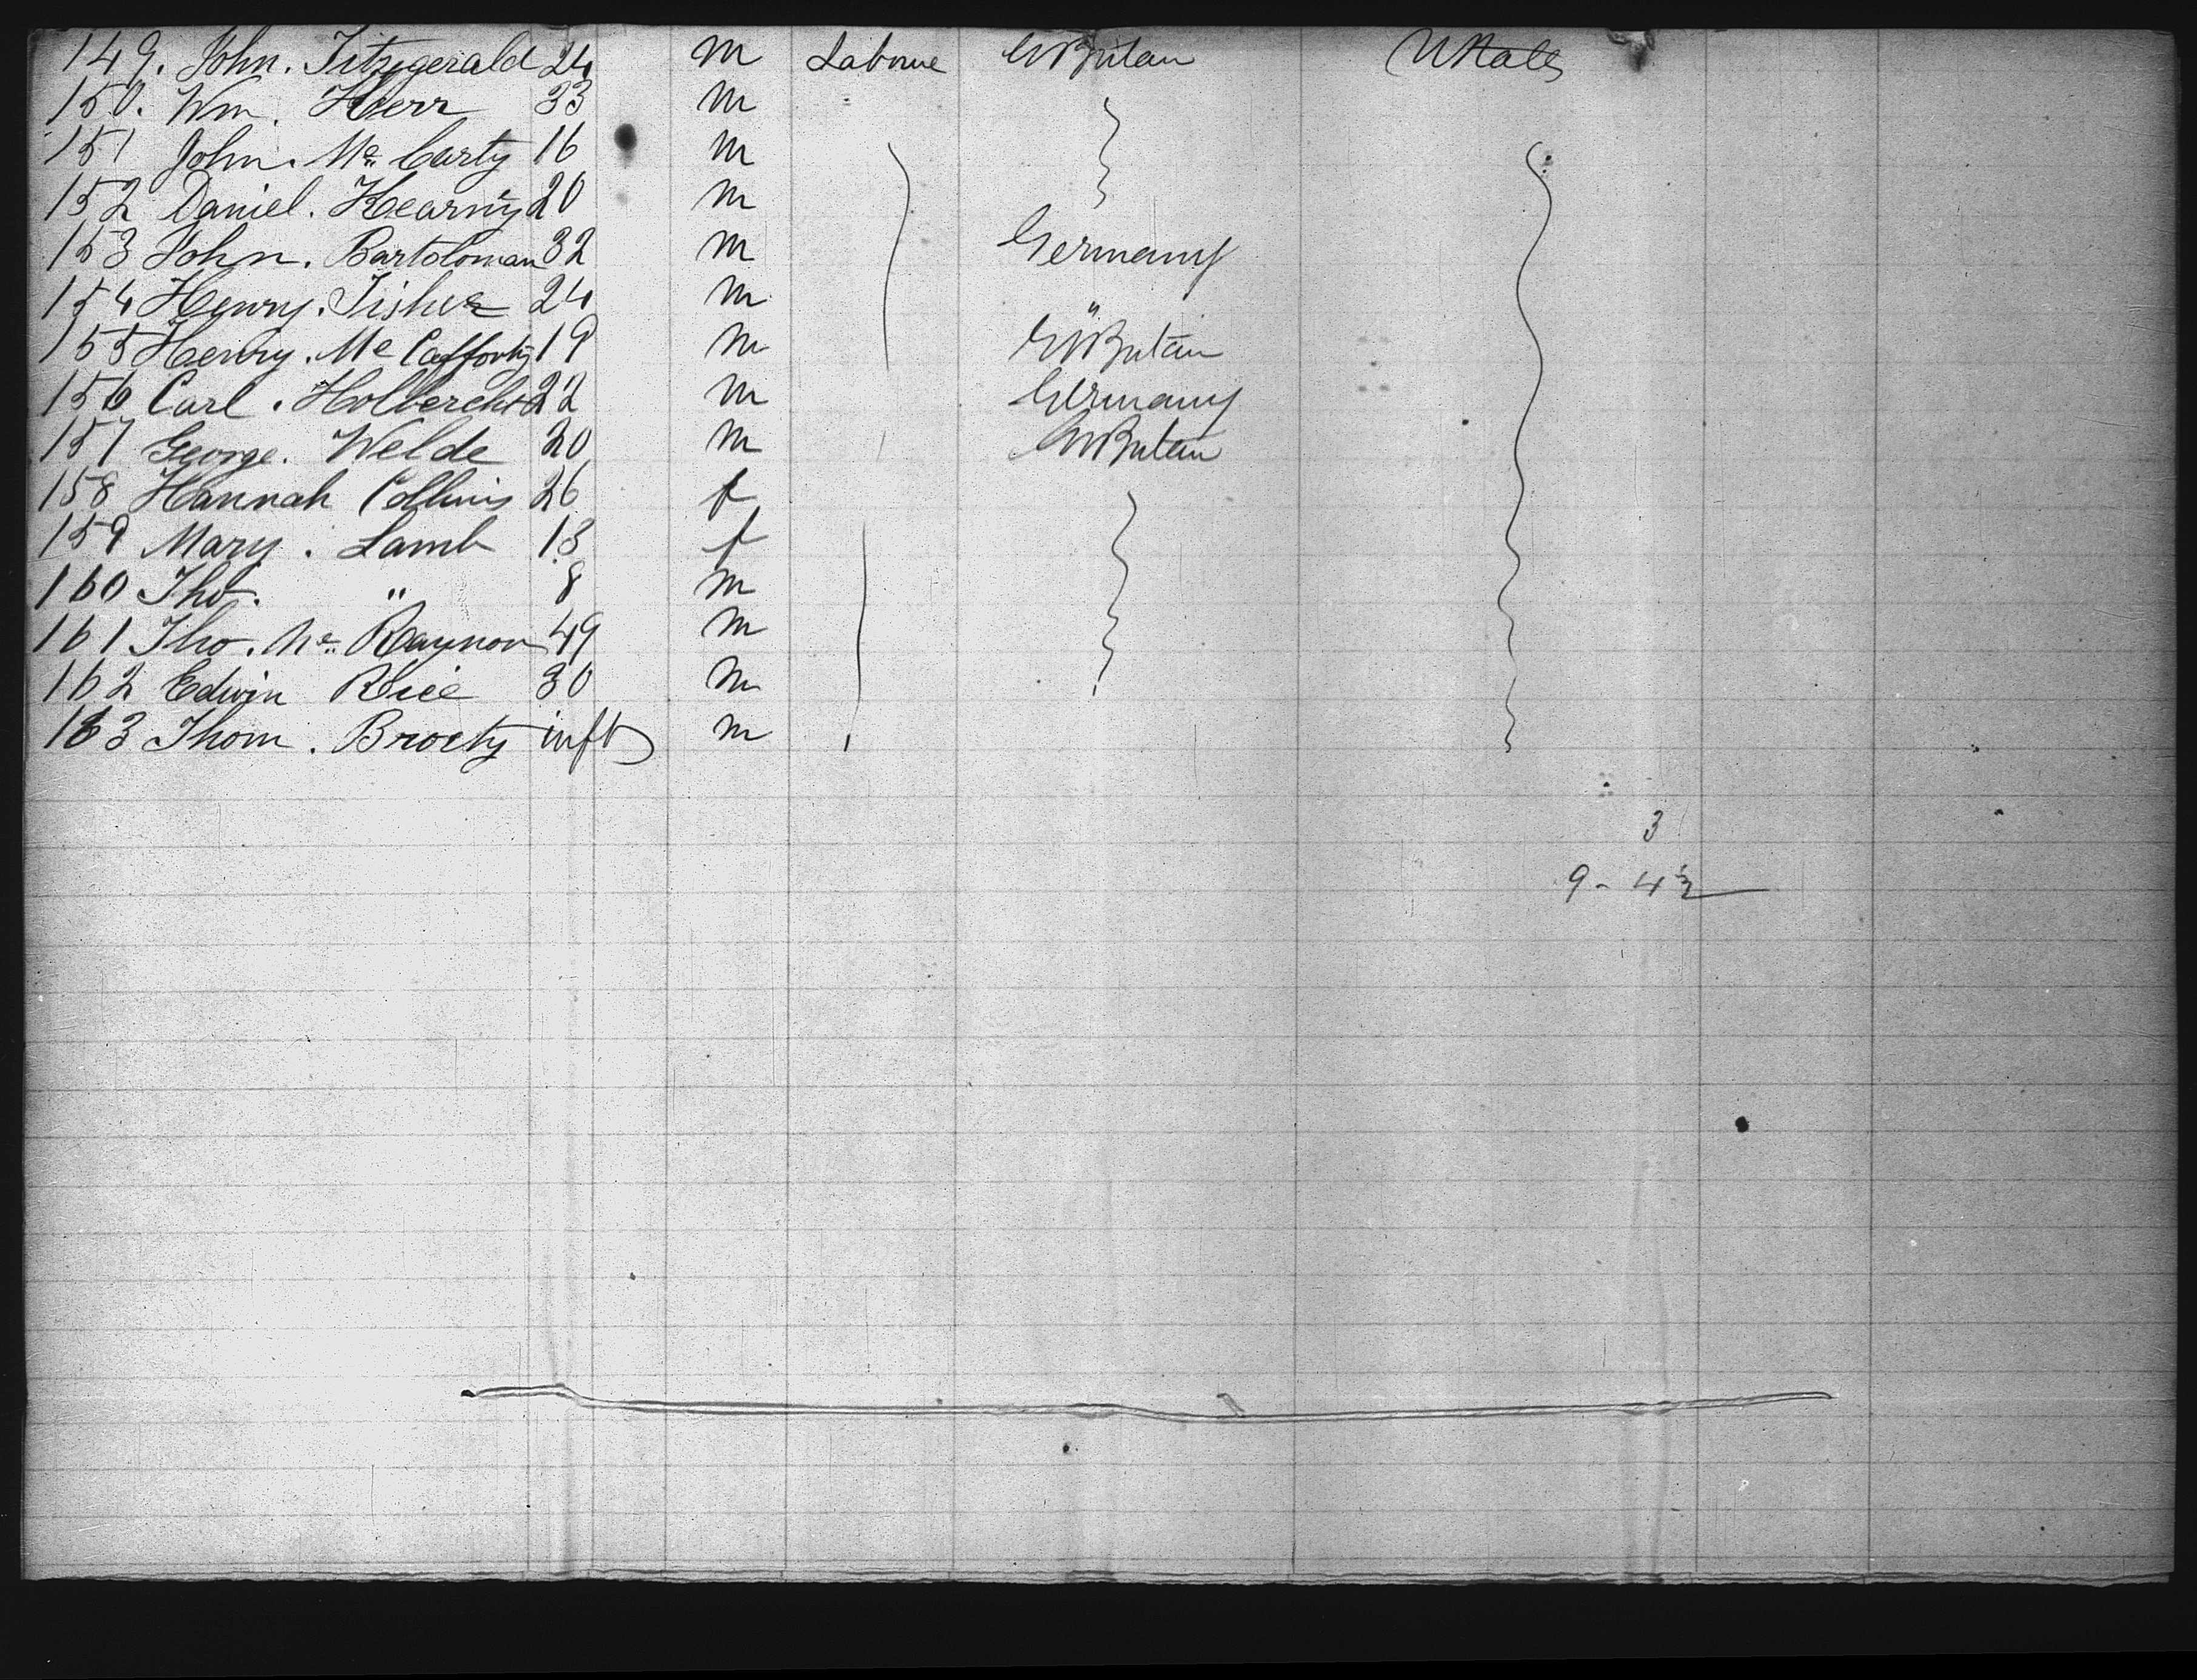 149. John. Fitzgerald 24 m Laboure GtBritain UStates
150. Wm. Herr 33 m "
151 John. Mc Carty 16 m
152 Daniel. Kearny 20 m
153 John. Bartoloman 32 m Germany
154 Henry. Fisher 24 m "
155 Henry. Mc Cafforty 19 m GtBritain
156 Carl. Holbercht 22 m Germany
157 George. Welde 20 m GtBritain
158 Hannah Collins 26 f
159 Mary. Lamb 13 f
160 Tho. " 8 m
161 Tho. Mc Raynor 49 m
162 Edwin Rice 30 m
163 Thom. Brocty inft m
3
9 - 4